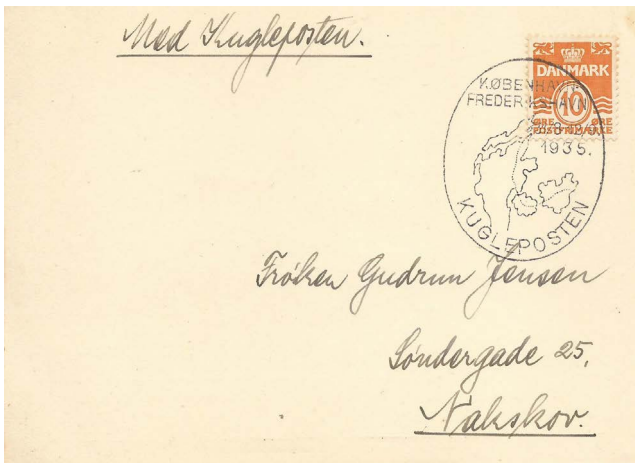 Med Kugleposten.
DANMARK
10
ØRE ØRE
POSTFRIMÆRKE
KØBENHAVN
FREDERIKSHAVN
1935.
KUGLEPOSTEN
Frøken Gudrun Jensen
Søndergade 25.
Nakskov.